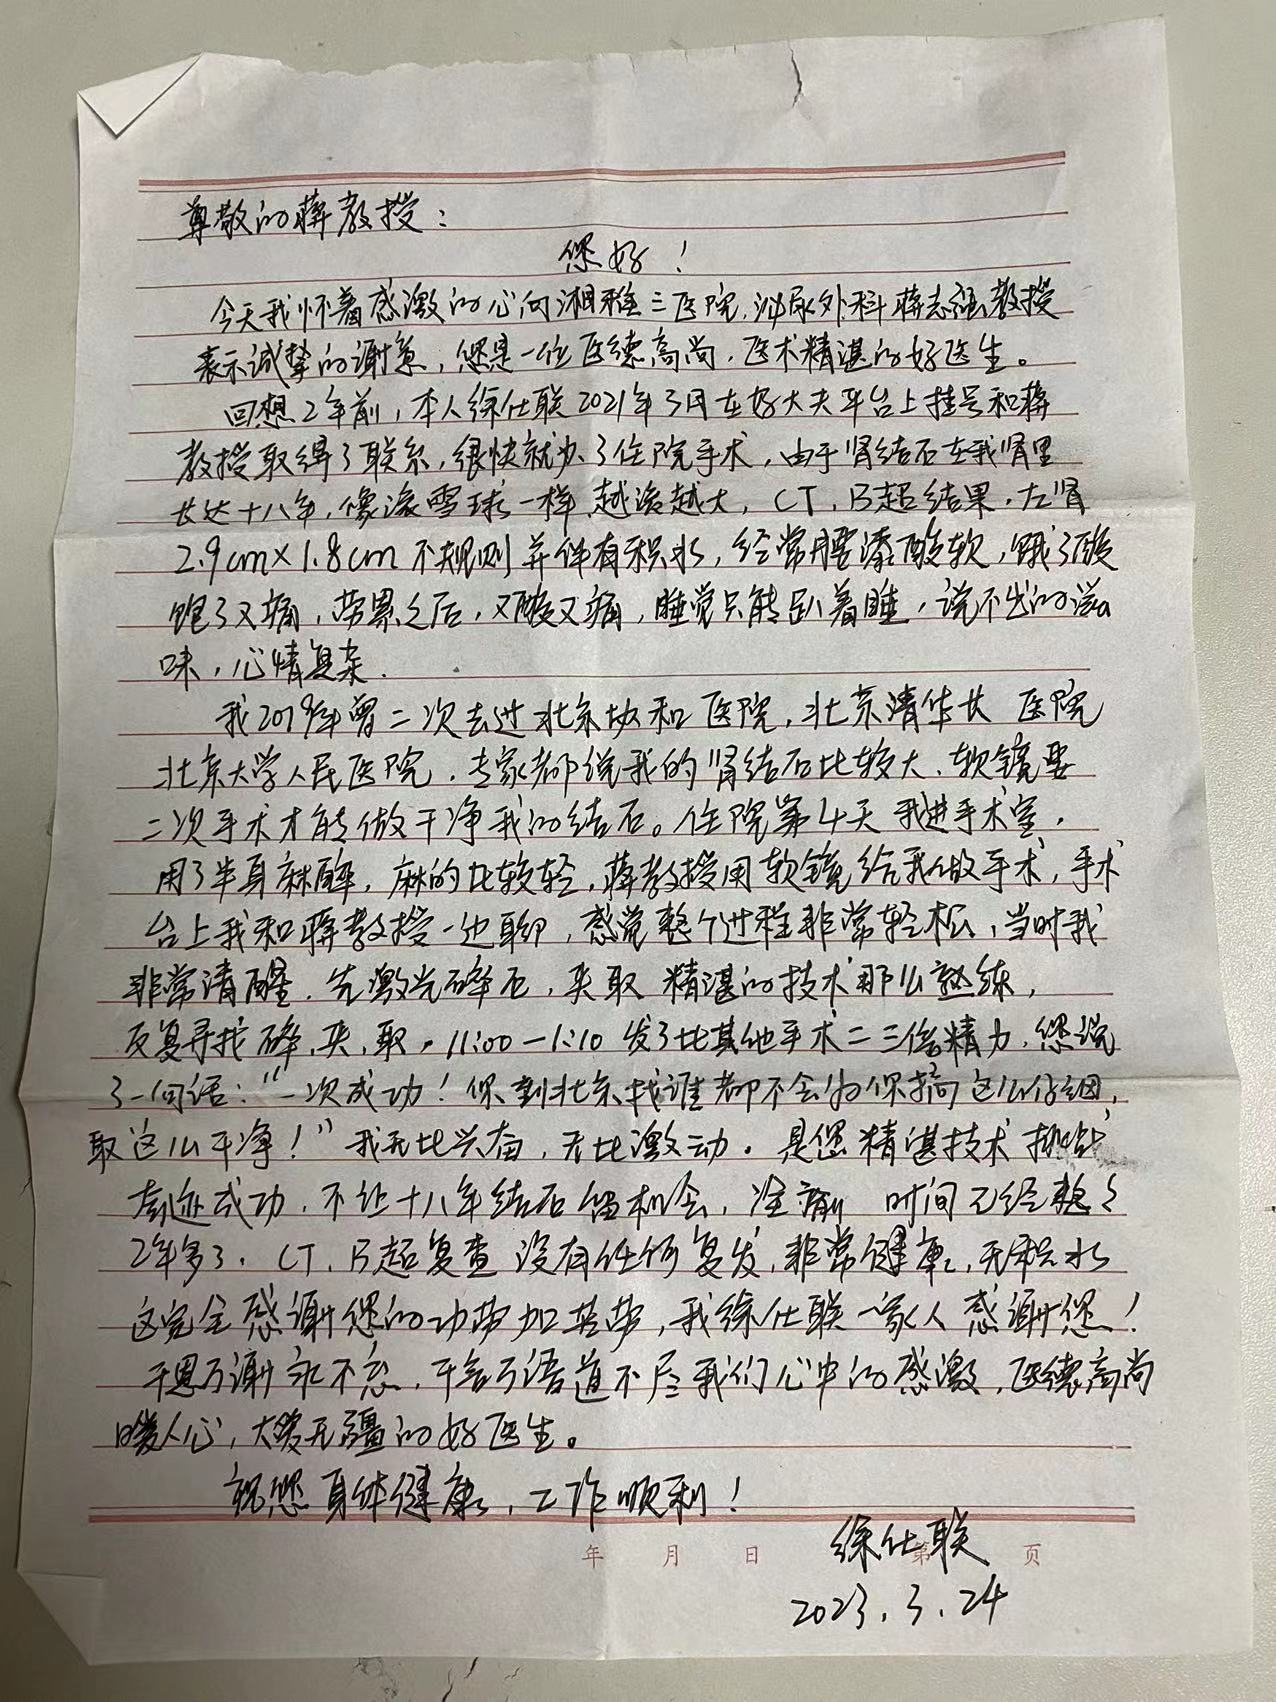 尊敬的蒋教授：
您好！
今天我怀着感激的心向湘雅三医院，泌尿外科蒋志强教授
表示诚挚的谢意，您是一位医德高尚，医术精湛的好医生。
回想2年前，本人徐仕联2021年3月在好大夫平台上挂号和蒋
教授取得了联系，很快就办了住院手术，由于肾结石在我肾里
长达十八年，像滚雪球一样越滚越大，CT，B超结果，左肾
2.9cm×1.8cm不规则并伴有积水，经常腰漆酸软，饿了酸
饱了又痛，劳累之后，又酸又痛，睡觉只能趴着睡，说不出的滋
味，心情复杂.
我2019年曾二次去过北京协和医院，北京清华长 医院
北京大学人民医院，专家都说我的肾结石比较大，软镜要
二次手术才能做干净我的结石。住院第4天我进手术室，
用了半身麻醉，麻的比较轻，蒋教授用软镜给我做手术，手术
台上我和蒋教授一边聊，感觉整个过程非常轻松，当时我
非常清醒，先激光碎石，夹取 精湛的技术那么熟练，
反复寻找碎，夹，取，11:00-1:10发了比其他手术二三倍精力，您说
了一句话：“一次成功！你到北京找谁都不会为你搞这么仔细，
取这么干净！”我无比兴奋，无比激动。是您精湛技术
奇迹成功，不让十八年结石留机会， 时间已经整整
2年多了，CT，B超复查没有任何复发，非常健康，无积水
这完全感谢您的功劳加苦劳，我徐仕联一家人感谢您！
千恩万谢永不忘，千言万语道不尽我们心中的感激，医德高尚
暖人心，大爱无疆的好医生。
祝您身体健康，工作顺利！
年 月 日 第 页
徐仕联
2023.3.24